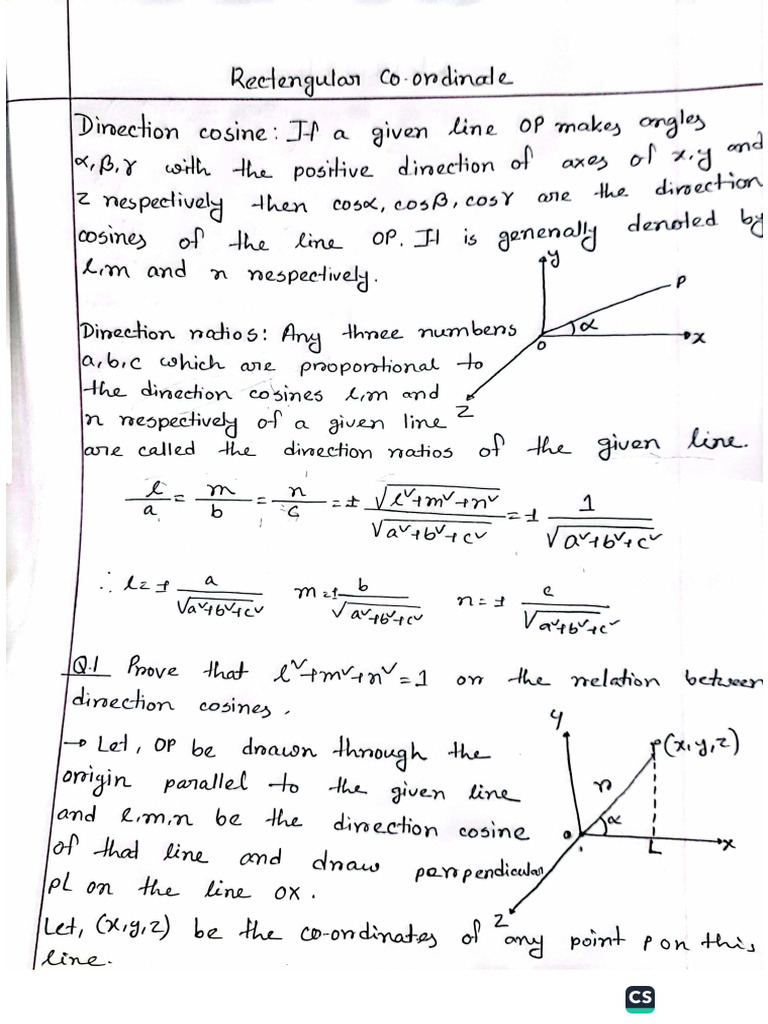 Rectengular Co-ordinate
Direction cosine: If a given line OP makes angles
α, β, γ with the positive direction of axes of x, y and
z respectively then cosα, cosβ, cosγ are the direction
cosines of the line OP. It is generally denoted by
l, m and n respectively.
y
P
α
O
x
z
Direction ratios: Any three numbers
a, b, c which are proportional to
the direction cosines l, m and
n respectively of a given line
are called the direction ratios of the given line.
l/a = m/b = n/c = ± √(l²+m²+n²)/√(a²+b²+c²) = ± 1/√(a²+b²+c²)
∴ l = ± a/√(a²+b²+c²) m = ± b/√(a²+b²+c²) n = ± c/√(a²+b²+c²)
Q.1 Prove that l²+m²+n² = 1 or the relation between
direction cosines.
→ Let, OP be drawn through the
origin parallel to the given line
and l, m, n be the direction cosine
of that line and draw perpendicular
PL on the line OX.
y
P(x, y, z)
r
α
O
L
x
z
Let, (x, y, z) be the co-ordinates of any point P on this
line.
CS